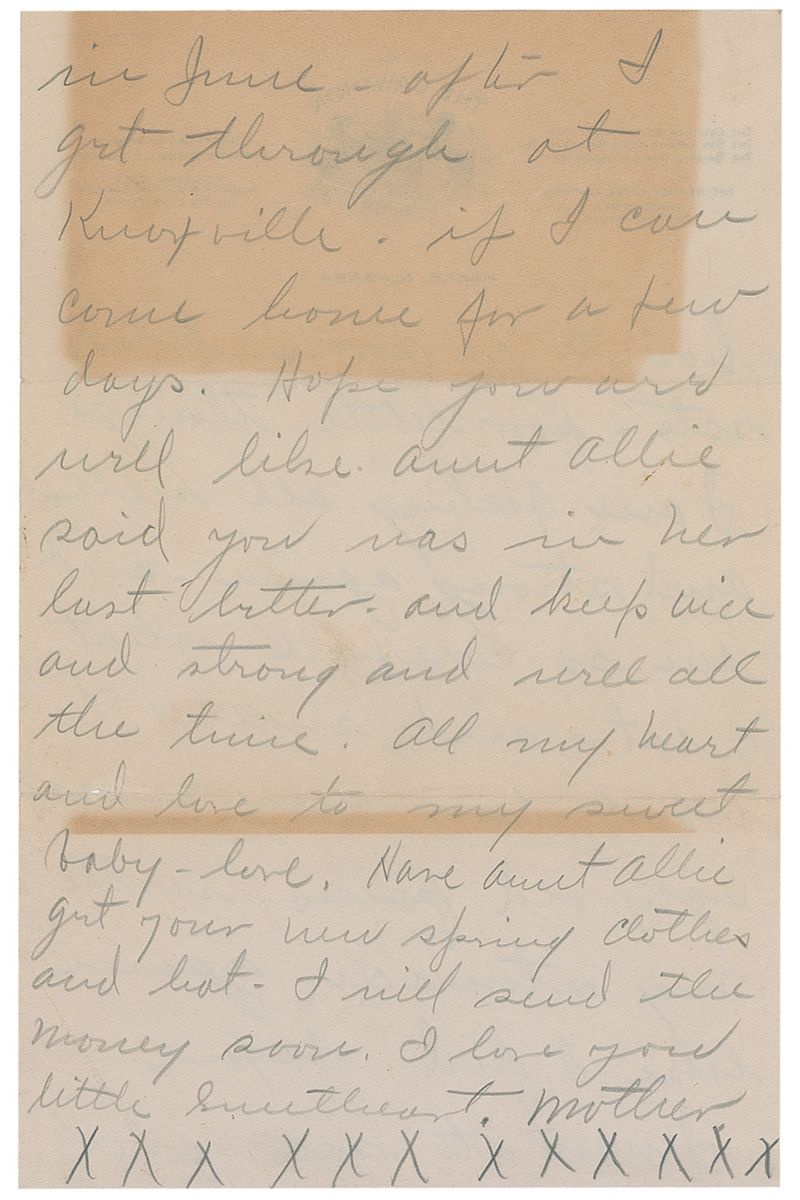 in June - after I
get through at
Knoxville. if I can
come home for a few
days. Hope you are
well like. aunt allie
said you was in her
last letter - and keep nice
and strong and well all
the time. All my heart
and love to my sweet
baby - love. Have aunt allie
get your new spring clothes
and hat - I will send the
money soon. I love you
little sweetheart. Mother
X X X X X X X X X X X X